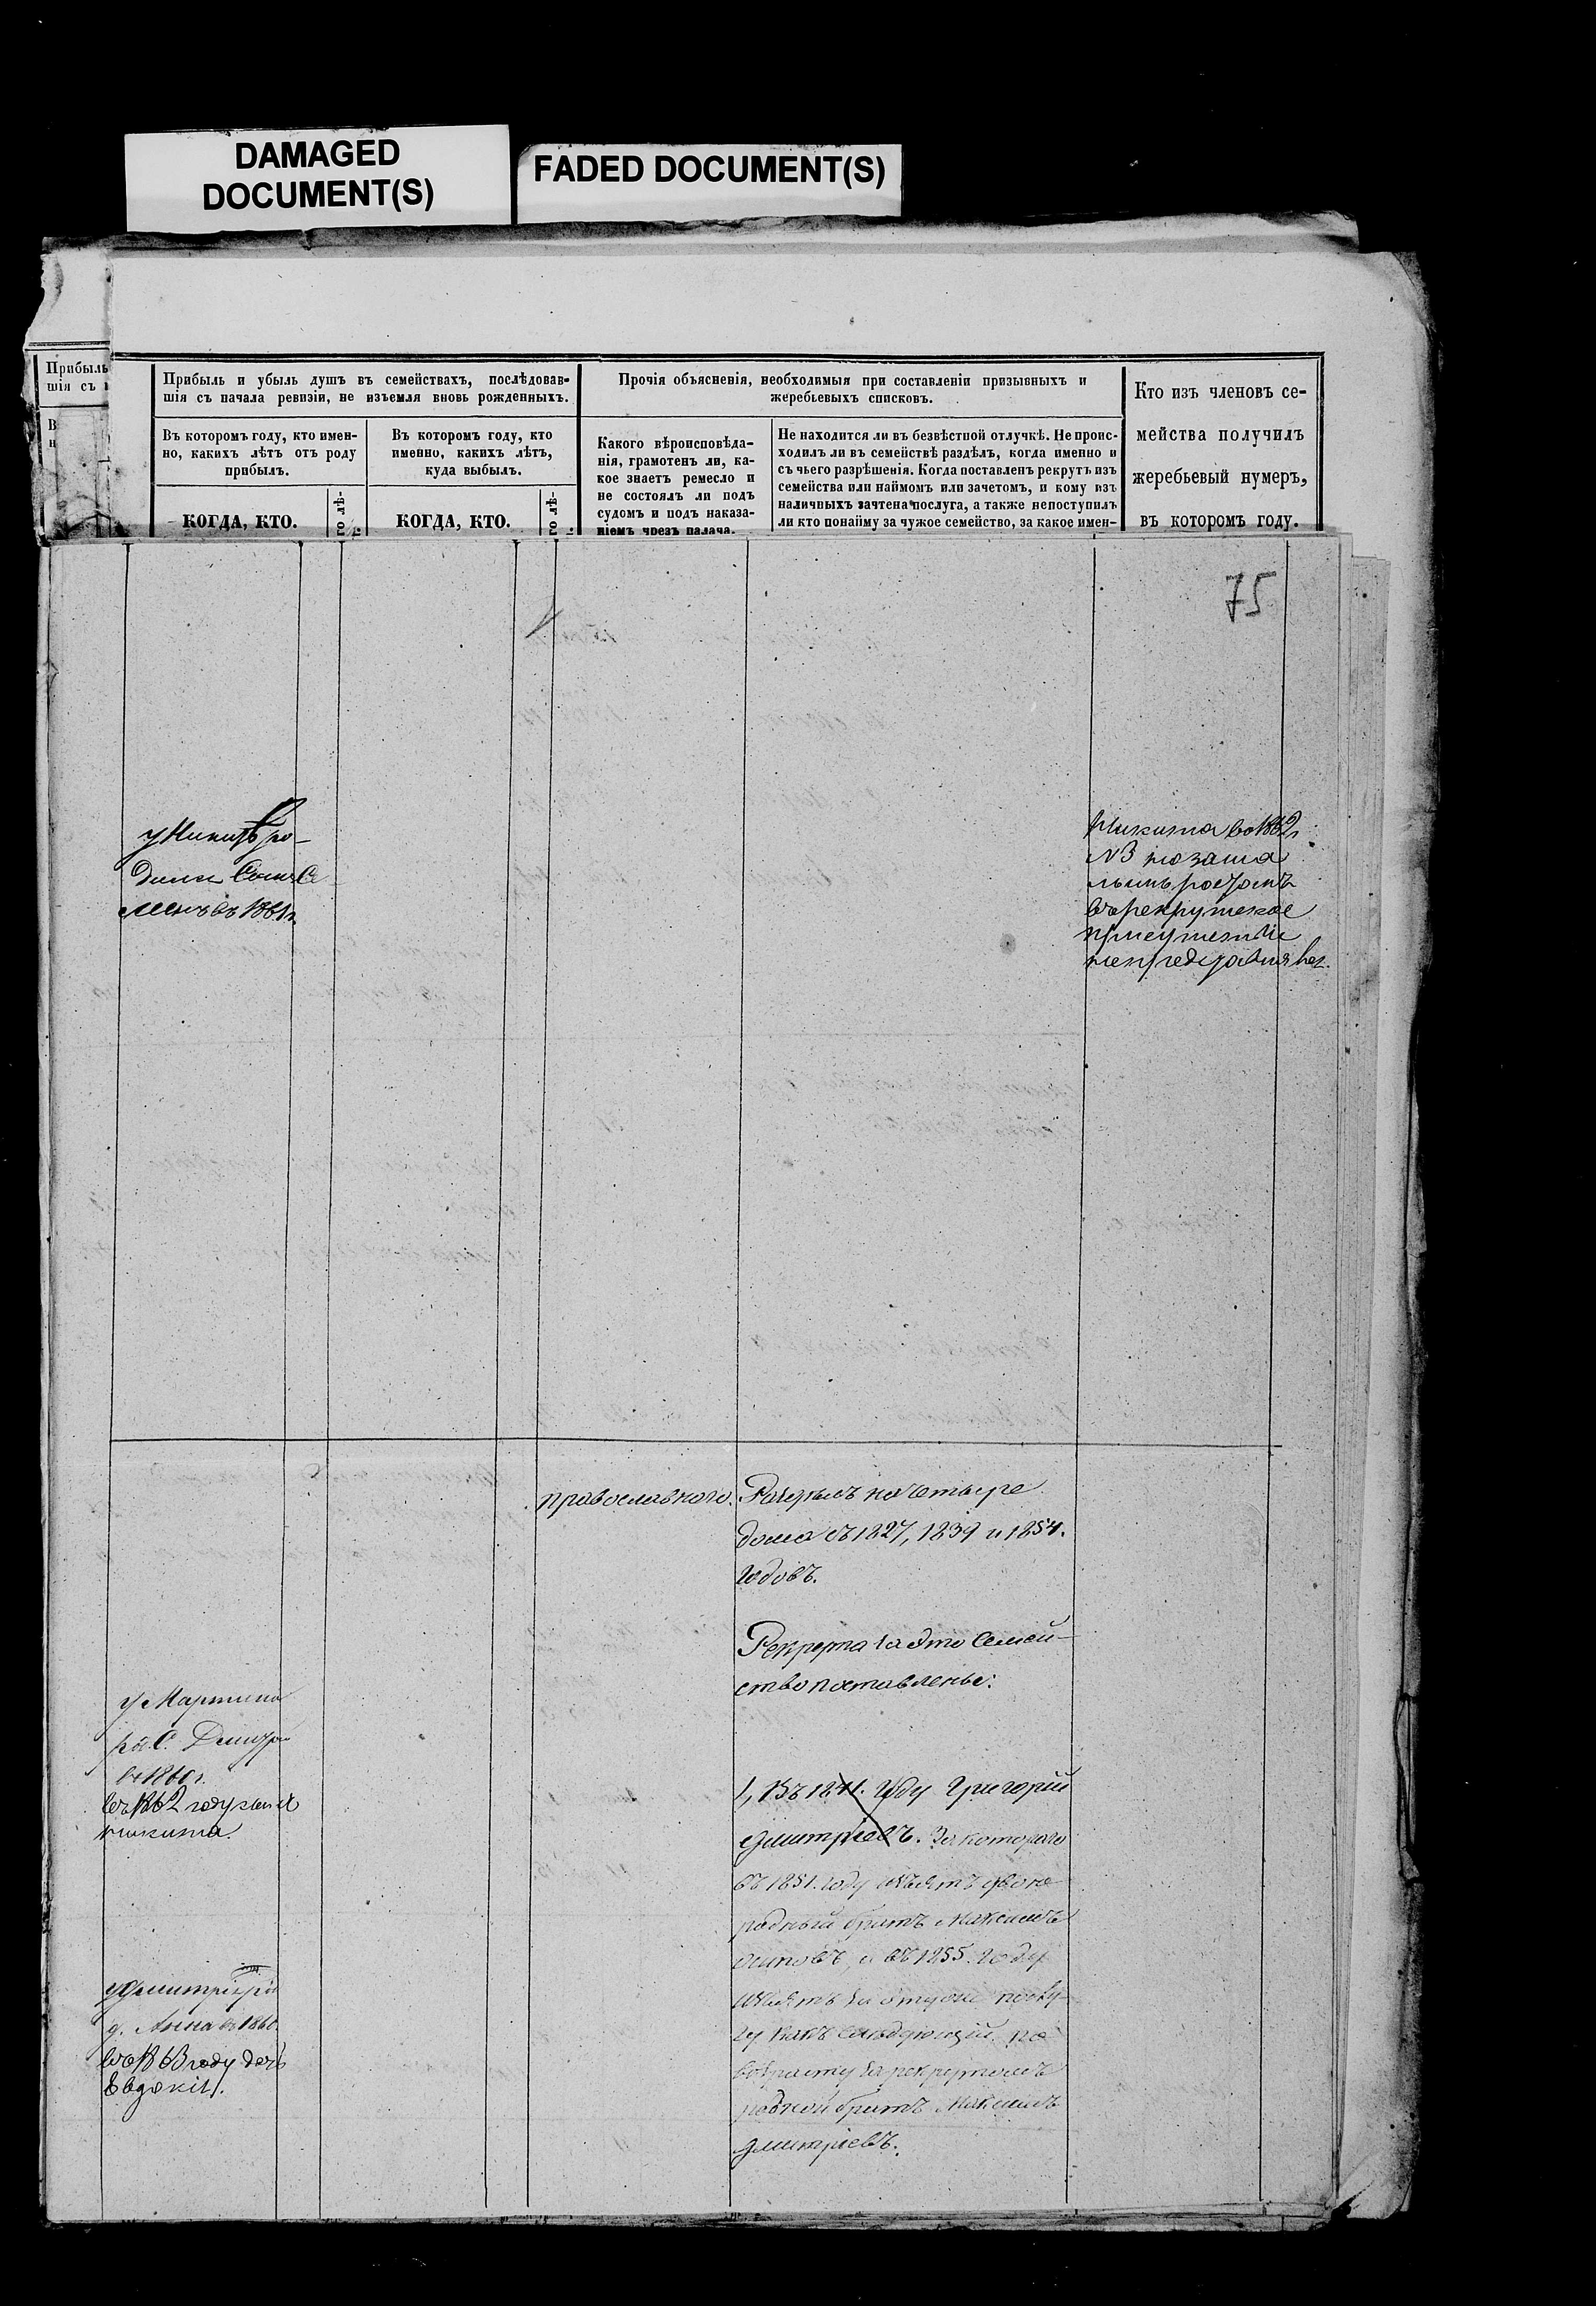 DAMAGED
DOCUMENT(S)
FADED DOCUMENT(S)
Прибыль
шія съ
В
н
Прибыль и убыль душъ въ семействахъ, послѣдовав-
шія съ начала ревизіи, не изъемля вновь рожденныхъ.
Въ которомъ году, кто имен-
но, какихъ лѣтъ отъ роду
прибылъ.
КОГДА, КТО.
Въ которомъ году, кто
именно, какихъ лѣтъ,
куда выбылъ.
КОГДА, КТО.
Прочія объясненія, необходимыя при составленіи призывныхъ и
жеребьевыхъ списковъ.
Какого вѣроисповѣда-
нія, грамотенъ ли, ка-
кое знаетъ ремесло и
не состоялъ ли подъ
судомъ и подъ наказа-
ніемъ чрезъ палача.
Не находится ли въ безвѣстной отлучкѣ. Не проис-
ходилъ ли въ семействѣ раздѣлъ, когда именно и
съ чьего разрѣшенія. Когда поставленъ рекрутъ изъ
семейства или наймомъ или зачетомъ, и кому изъ
наличныхъ зачтена послуга, а также непоступилъ
ли кто понайму за чужое семейство, за какое имен-
Кто изъ членовъ се-
мейства получилъ
жеребьевый нумеръ,
въ которомъ году.
75
у Никиты ро-
дился Сынъ
въ 1861г.
Никита во 1862г.
№3 но за ма
лымъ ростомъ
въ рекрутское
присутствіе
непредставлен.
православного.
Раздѣлъ на четыре
дома съ 1827, 1839 и 1854.
годовъ.
Рекрута за это Семей-
ство поставлены:
у Мартина
ро. С. Дмитр
въ 1860г.
въ 1862 году сынъ
никита.
1, Въ 1841. году Григорій
Дмитріевъ. За котораго
въ 1851. году двою-
родный братъ Максимъ
Осиповъ, и въ 1855. году
за эту же послу-
гу какъ слѣдующій по
возрасту за рекрутомъ
родной братъ Максимъ
Дмитріевъ.
у Дмитрія ро
д. Анна въ 1860.
во 1863 году дочь
Евдокія.